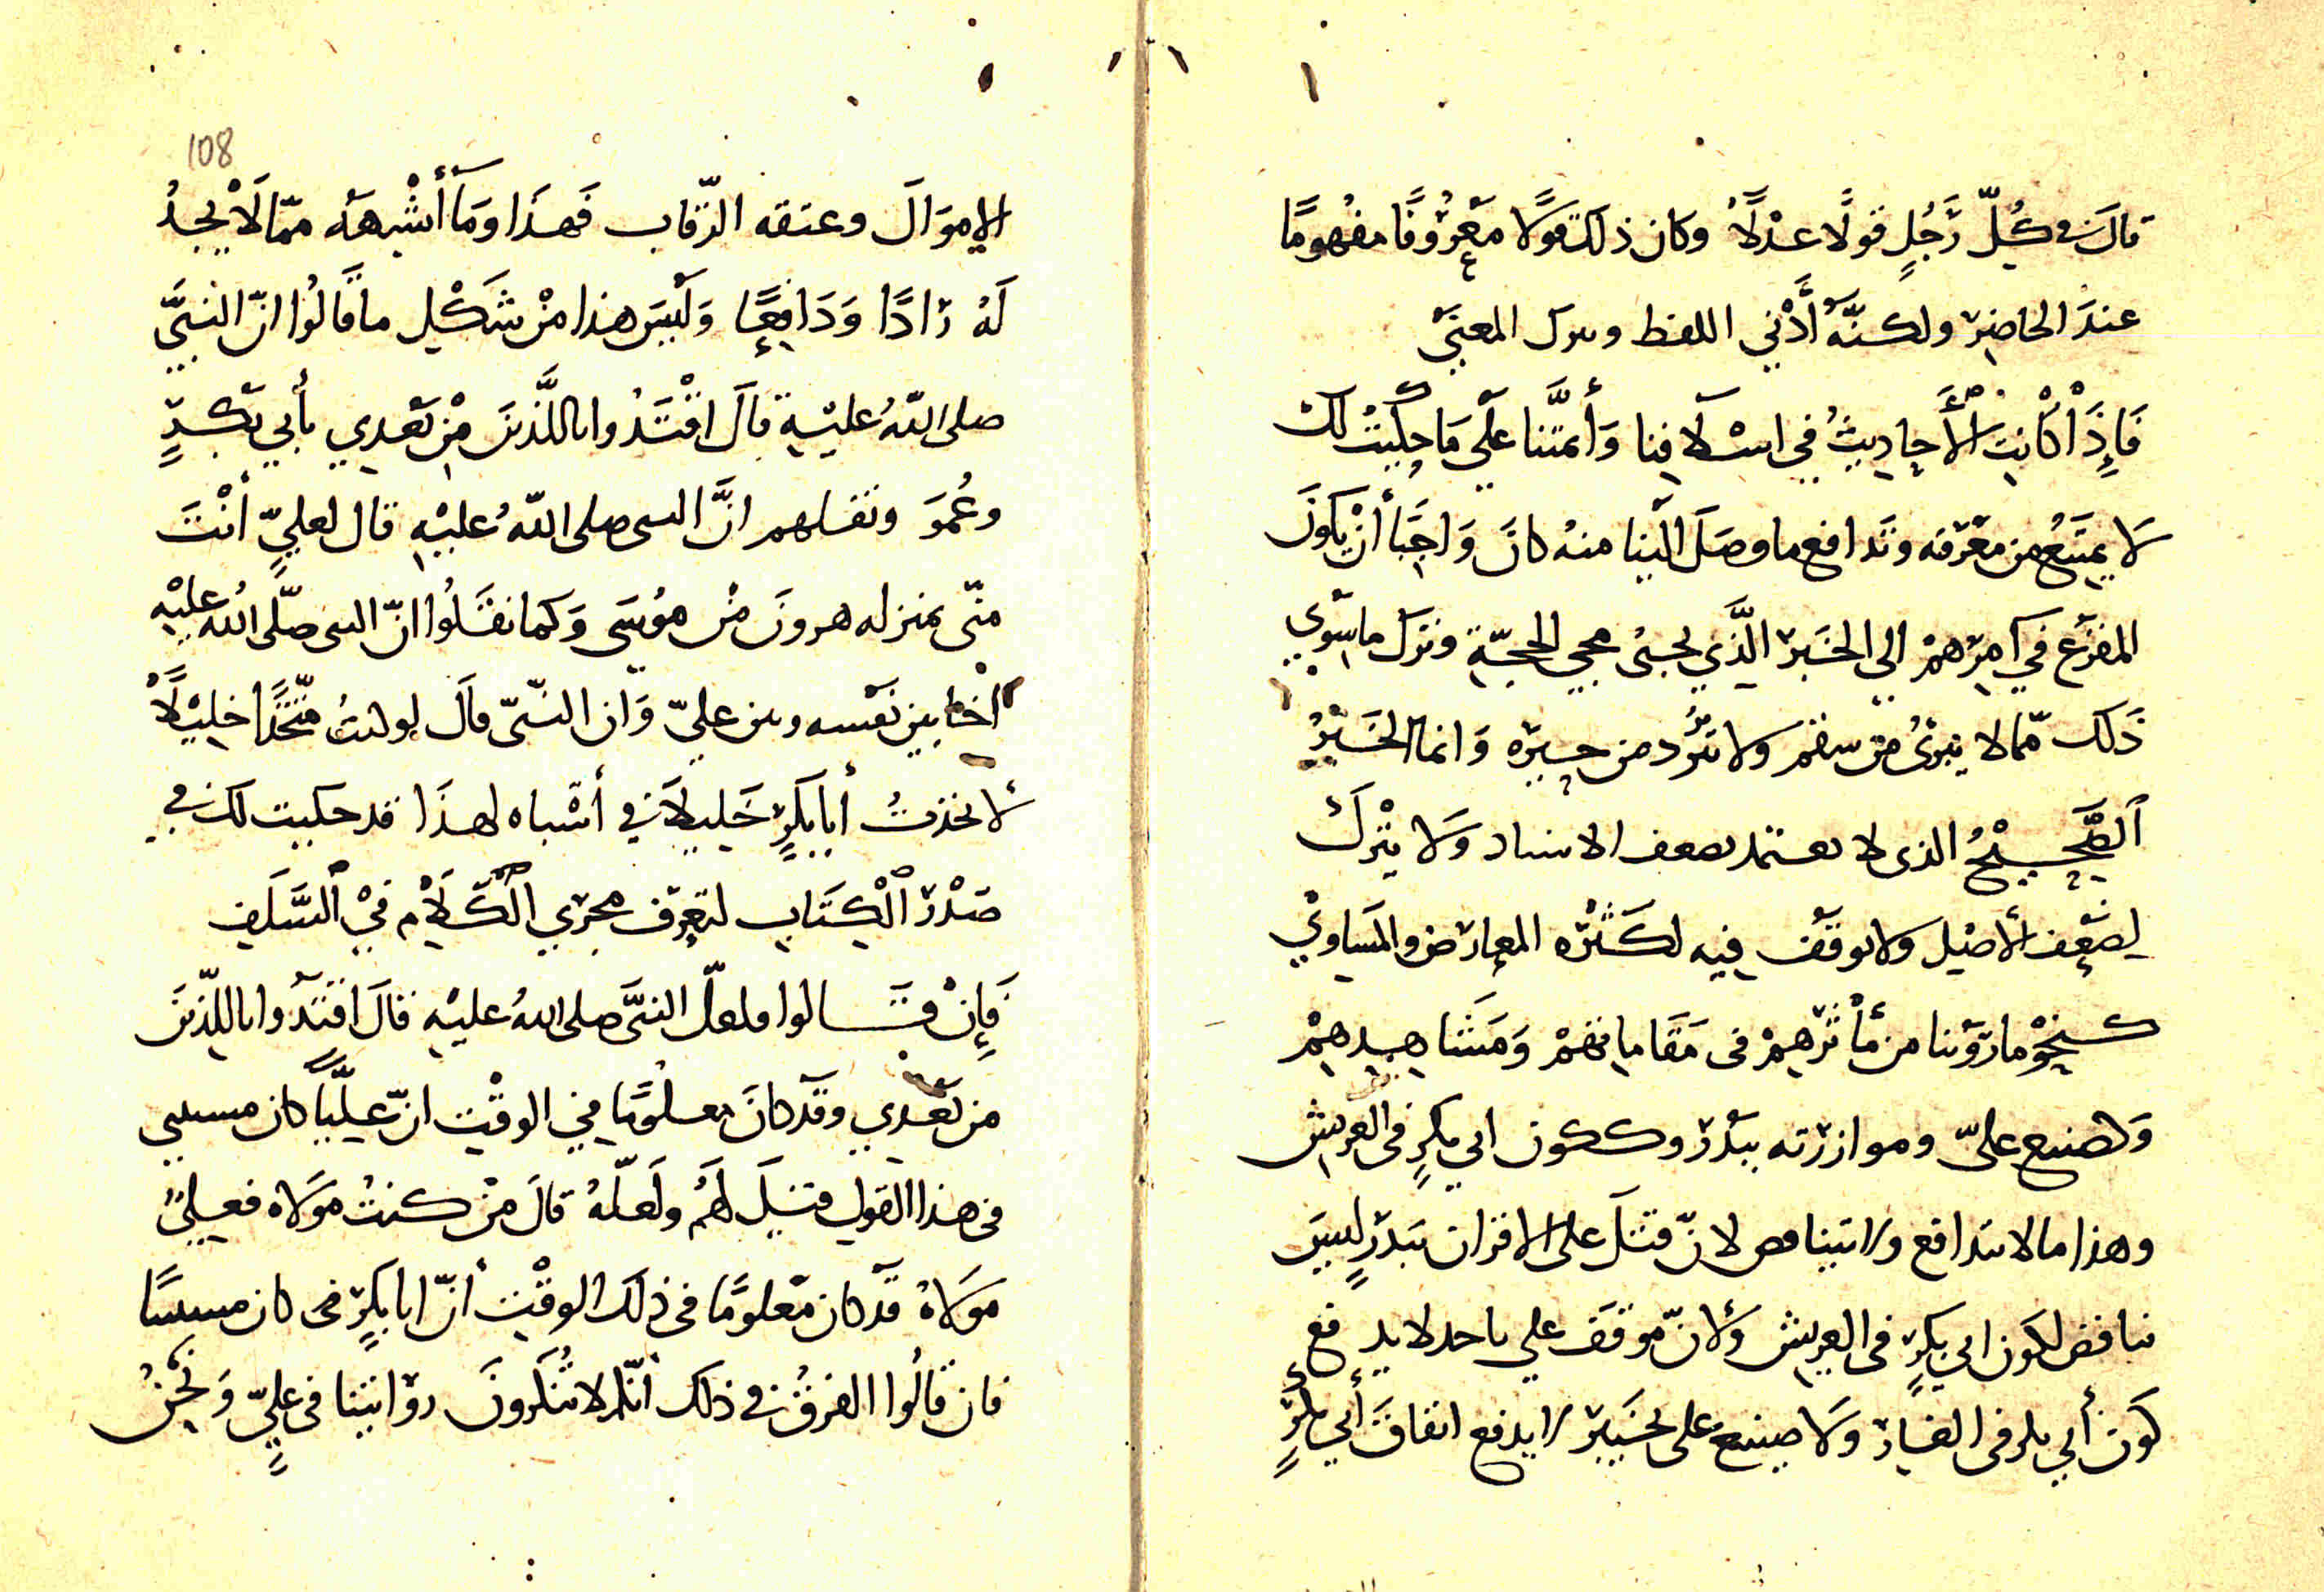 قال في كُلّ رَجُلٍ قولًا عدْلًا وكان ذلك قولًا معْرُوفًا مفْهومًا
عندَ الحاضِر ولكنَّهُ أدّني اللفظ وترك المعنَى
فَإِذَا كانت الأحاديثُ في اسْلافِنا وَأئمَّتنا علَى مَا حكيْتُ لك
لا يمتَنعُ من معْرفه وتَدافع ما وصَلَ الَينا منهُ كانَ وَاجبًا أنْ يكونَ
المفزَع في أمرِهمْ الي الخَبر الَّذي يجئُ مجي الحجّة ونترك ما سِوَي
ذَلك ممّا لا يبرئُ من سقم ولا يَرُد من حيره وَانما الخَبَرُ
الصَّحِيْحُ الذى لا يعتمد بضعف الاسناد وَلا يتْرك
لضَعْف الأصْل ولا يوقَف فيه لكَثْرَه المعارض والمسَاوِيْ
كنحْو ما روَيْنا من مأثرِهمْ فى مَقَاماتهمْ وَمَشَاهِدهِمْ
وَلصنيع عليّ وموازرَته ببَدْر وككون ابي بكرٍ فى العريش
وهذا ما لا يتدافع ولا يتناقص لانّ قتْلَ على الاقران ببَدْرٍ ليسَ
بناقض لكَون ابي بكرٍ فى العريش ولأنّ موقفَ علي باحد لا يدفع
كَونَ أبي بكر فى الغار وَلا صنيع على بخَيبَر لا يدفع انفاقَ أبي بكرٍ
108
الاموَالَ وعتقه الرّقاب فَهذَا وَمَا أَشْبهَه ممّا لَا يجدُ
لَهُ رَادًا وَدَافِعًا وَلَيسَ هذا مِنْ شَكْلِ ما قَالُوا انّ النبيَّ
صلى اللّهُ عليْهِ قالَ اقْتَدُوا باللَّذينَ مِنْ بَعْدي بأبي بَكْرٍ
وعُمَرَ ونقلهم انَّ النبى صلى اللّهُ عليْهِ قال لعليٍّ أنْتَ
منّى بمنزله هرونَ مِنْ موُسَى وَكما نقَلُوا انّ النبى صلّى اللهُ عليْهِ
اخا بين نفسه وبين عليّ وَان النبّىّ قالَ لو كنتُ متّخذًا خليْلًا
لاتخذتُ أبا بكرٍ خَليلاً في أشباه لهذَا قد حكيت لك في
صَدْر الْكِتَاب لتعرِف مجرَي الكَلَامِ فيْ السَّلَفِ
فَإِنْ قَالوا فلعلّ النبيَّ صلى اللهُ عليْهِ قالَ اقتَدُوا باللّذينَ
من بَعْدي وقَدْ كانَ معلُومًا في الوقْت انّ عليًّا كان مسسى
فى هذا القول قيْلَ لهُمْ ولَعلّهُ قالَ مَنْ كنتُ مَوْلاه فعليٌّ
مَوْلاهُ قَدْ كان معْلومًا فى ذلك الوقْت أنّ ابا بكرٍ فى كان مسسًا
فان قَالُوا الفرقُ في ذلك أنّكم لا تُنكرونَ روَايتنا فى عليٍّ وَنحْنُ